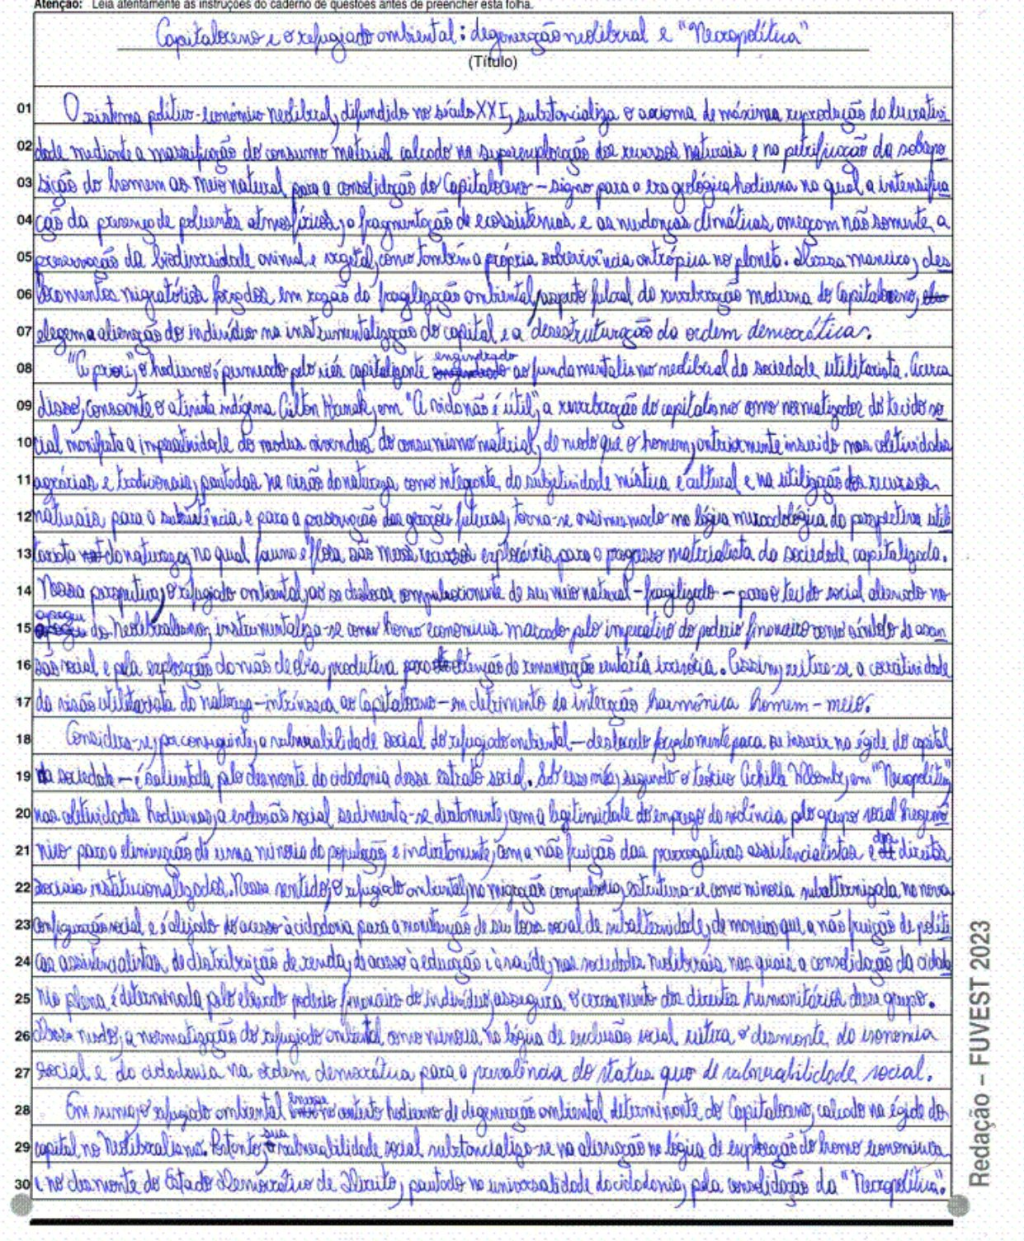 Atenção: Leia atentamente as instruções do caderno de questões antes de preencher esta folha.
Capitaloceno e o refugiado ambiental: degeneração neoliberal e "Necropolítica"
(Título)
01 O sistema político-econômico neoliberal, difundido no século XXI, substancializa o axioma de máxima reprodução da lucrativi
02 dade mediante a massificação do consumo material calcado na superexploração dos recursos naturais e na petrificação da sobrepo
03 sição do homem ao meio natural para a consolidação do Capitaloceno - signo para a era geológica hodierna na qual a intensifica
04 ção da presença de poluentes atmosféricos, a fragmentação de ecossistemas e as mudanças climáticas ameaçam não somente a
05 preservação da biodiversidade animal e vegetal, como também a própria sobrevivência antrópica no planeta. Dessa maneira, des
06 locamentos migratórios forçados, em razão da fragilização ambiental, aspecto fulcral da reverberação moderna do Capitaloceno,
07 elegem a alienação do indivíduo na instrumentalização do capital e a desestruturação da ordem democrática.
08 "A priori", o hodierno é permeado pelo viés capitalizante engendrado ao fundamentalismo neoliberal da sociedade utilitarista. Acerca
09 disso, consoante o ativista indígena Ailton Krenak, em "A vida não é útil", a reverberação do capitalismo como normatizador do tecido so
10 cial manifesta a imperatividade do modus vivendi do consumismo material, de modo que o homem, anteriormente inserido nas coletividades
11 agrárias e tradicionais, pautadas na visão da natureza como integrante da subjetividade mística e cultural e na utilização dos recursos
12 naturais para a subsistência e para a preservação das gerações futuras, torna-se ensimesmado na lógica mercadológica da perspectiva utili
13 tarista da natureza, na qual fauna e flora são meros recursos exploráveis para o progresso materialista da sociedade capitalizada.
14 Nessa perspectiva, o refugiado ambiental, ao se deslocar compulsoriamente de seu meio natural - fragilizado - para o tecido social alienado no
15 apogeu do Neoliberalismo, instrumentaliza-se como homo economicus marcado pelo imperativo do poderio financeiro como símbolo de ascen
16 são social e pela exploração da mão de obra produtiva para obtenção de remuneração monetária irrisória. Assim, reitera-se a coercitividade
17 da visão utilitarista da natureza - intrínseca ao Capitaloceno - em detrimento da interação harmônica homem - meio.
18 Considera-se, por conseguinte, a vulnerabilidade social do refugiado ambiental - deslocado forçadamente para se inserir na égide do capital
19 da sociedade - é salientada pelo desmonte da cidadania desse estrato social. Sob esse viés, segundo o teórico Achille Mbembe, em "Necropolítica",
20 nas coletividades hodiernas, a exclusão social sedimenta-se diretamente, com a legitimidade do emprego da violência pelo grupo social hegemô
21 nico para a eliminação de uma minoria da população, e indiretamente, com a não fruição das prerrogativas assistencialistas e dos direitos
22 sociais institucionalizados. Nesse sentido, o refugiado ambiental, na migração compulsória, estrutura-se como minoria subalternizada na nova
23 configuração social e é alijado do acesso à cidadania para a manutenção de seu locus social de subalternidade, de maneira que a não fruição de políti
24 cas assistencialistas, de distribuição de renda, do acesso à educação e à saúde, nas sociedades neoliberais nas quais a consolidação da cidada
25 nia plena é determinada pelo elevado poderio financeiro do indivíduo, assegura o cerceamento dos direitos humanitários desse grupo.
26 Desse modo, a normatização do refugiado ambiental como minoria na lógica de exclusão social reitera o desmonte da isonomia
27 social e da cidadania na ordem democrática para a prevalência do status quo de vulnerabilidade social.
28 Em suma, o refugiado ambiental no contexto hodierno de degeneração ambiental determinante do Capitaloceno, calcado na égide do
29 capital no Neoliberalismo. Portanto, sua vulnerabilidade social substancializa-se na alienação na lógica de exploração do homo economicus
30 e no desmonte do Estado Democrático de Direito, pautado na universalidade da cidadania, pela consolidação da "Necropolítica".
Redação – FUVEST 2023